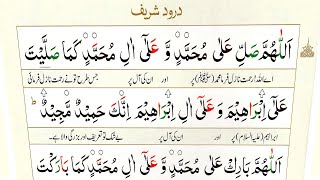 درود شریف
اَللّٰهُمَّ صَلِّ عَلٰی مُحَمَّدٍ وَّ عَلٰۤی اٰلِ مُحَمَّدٍ کَمَا صَلَّیْتَ
اے اللہ! رحمت نازل فرما محمد (ﷺ) پر اور ان کی آل پر جس طرح تو نے رحمت نازل فرمائی
عَلٰۤی اِبْرَاهِیْمَ وَ عَلٰۤی اٰلِ اِبْرَاهِیْمَ اِنَّكَ حَمِیْدٌ مَّجِیْدٌ ؕ
ابراہیم (علیہ السلام) پر اور ان کی آل پر بے شک تو تعریف اور بزرگی والا ہے۔
اَللّٰهُمَّ بَارِكْ عَلٰی مُحَمَّدٍ وَّ عَلٰۤی اٰلِ مُحَمَّدٍ کَمَا بَارَکْتَ